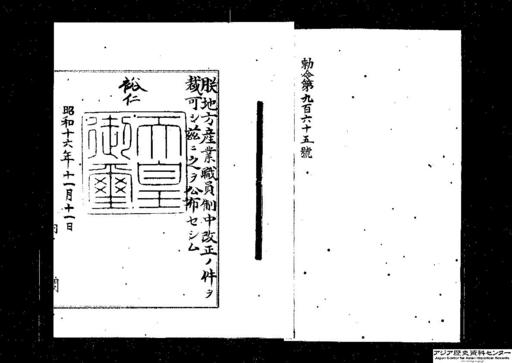 勅令第九百六十五號
朕地方産業職員制中改正ノ件ヲ
裁可シ茲ニ之ヲ公布セシム
裕仁
天皇
御璽
昭和十六年十一月十一日
内閣
アジア歴史資料センター
Japan Center for Asian Historical Records